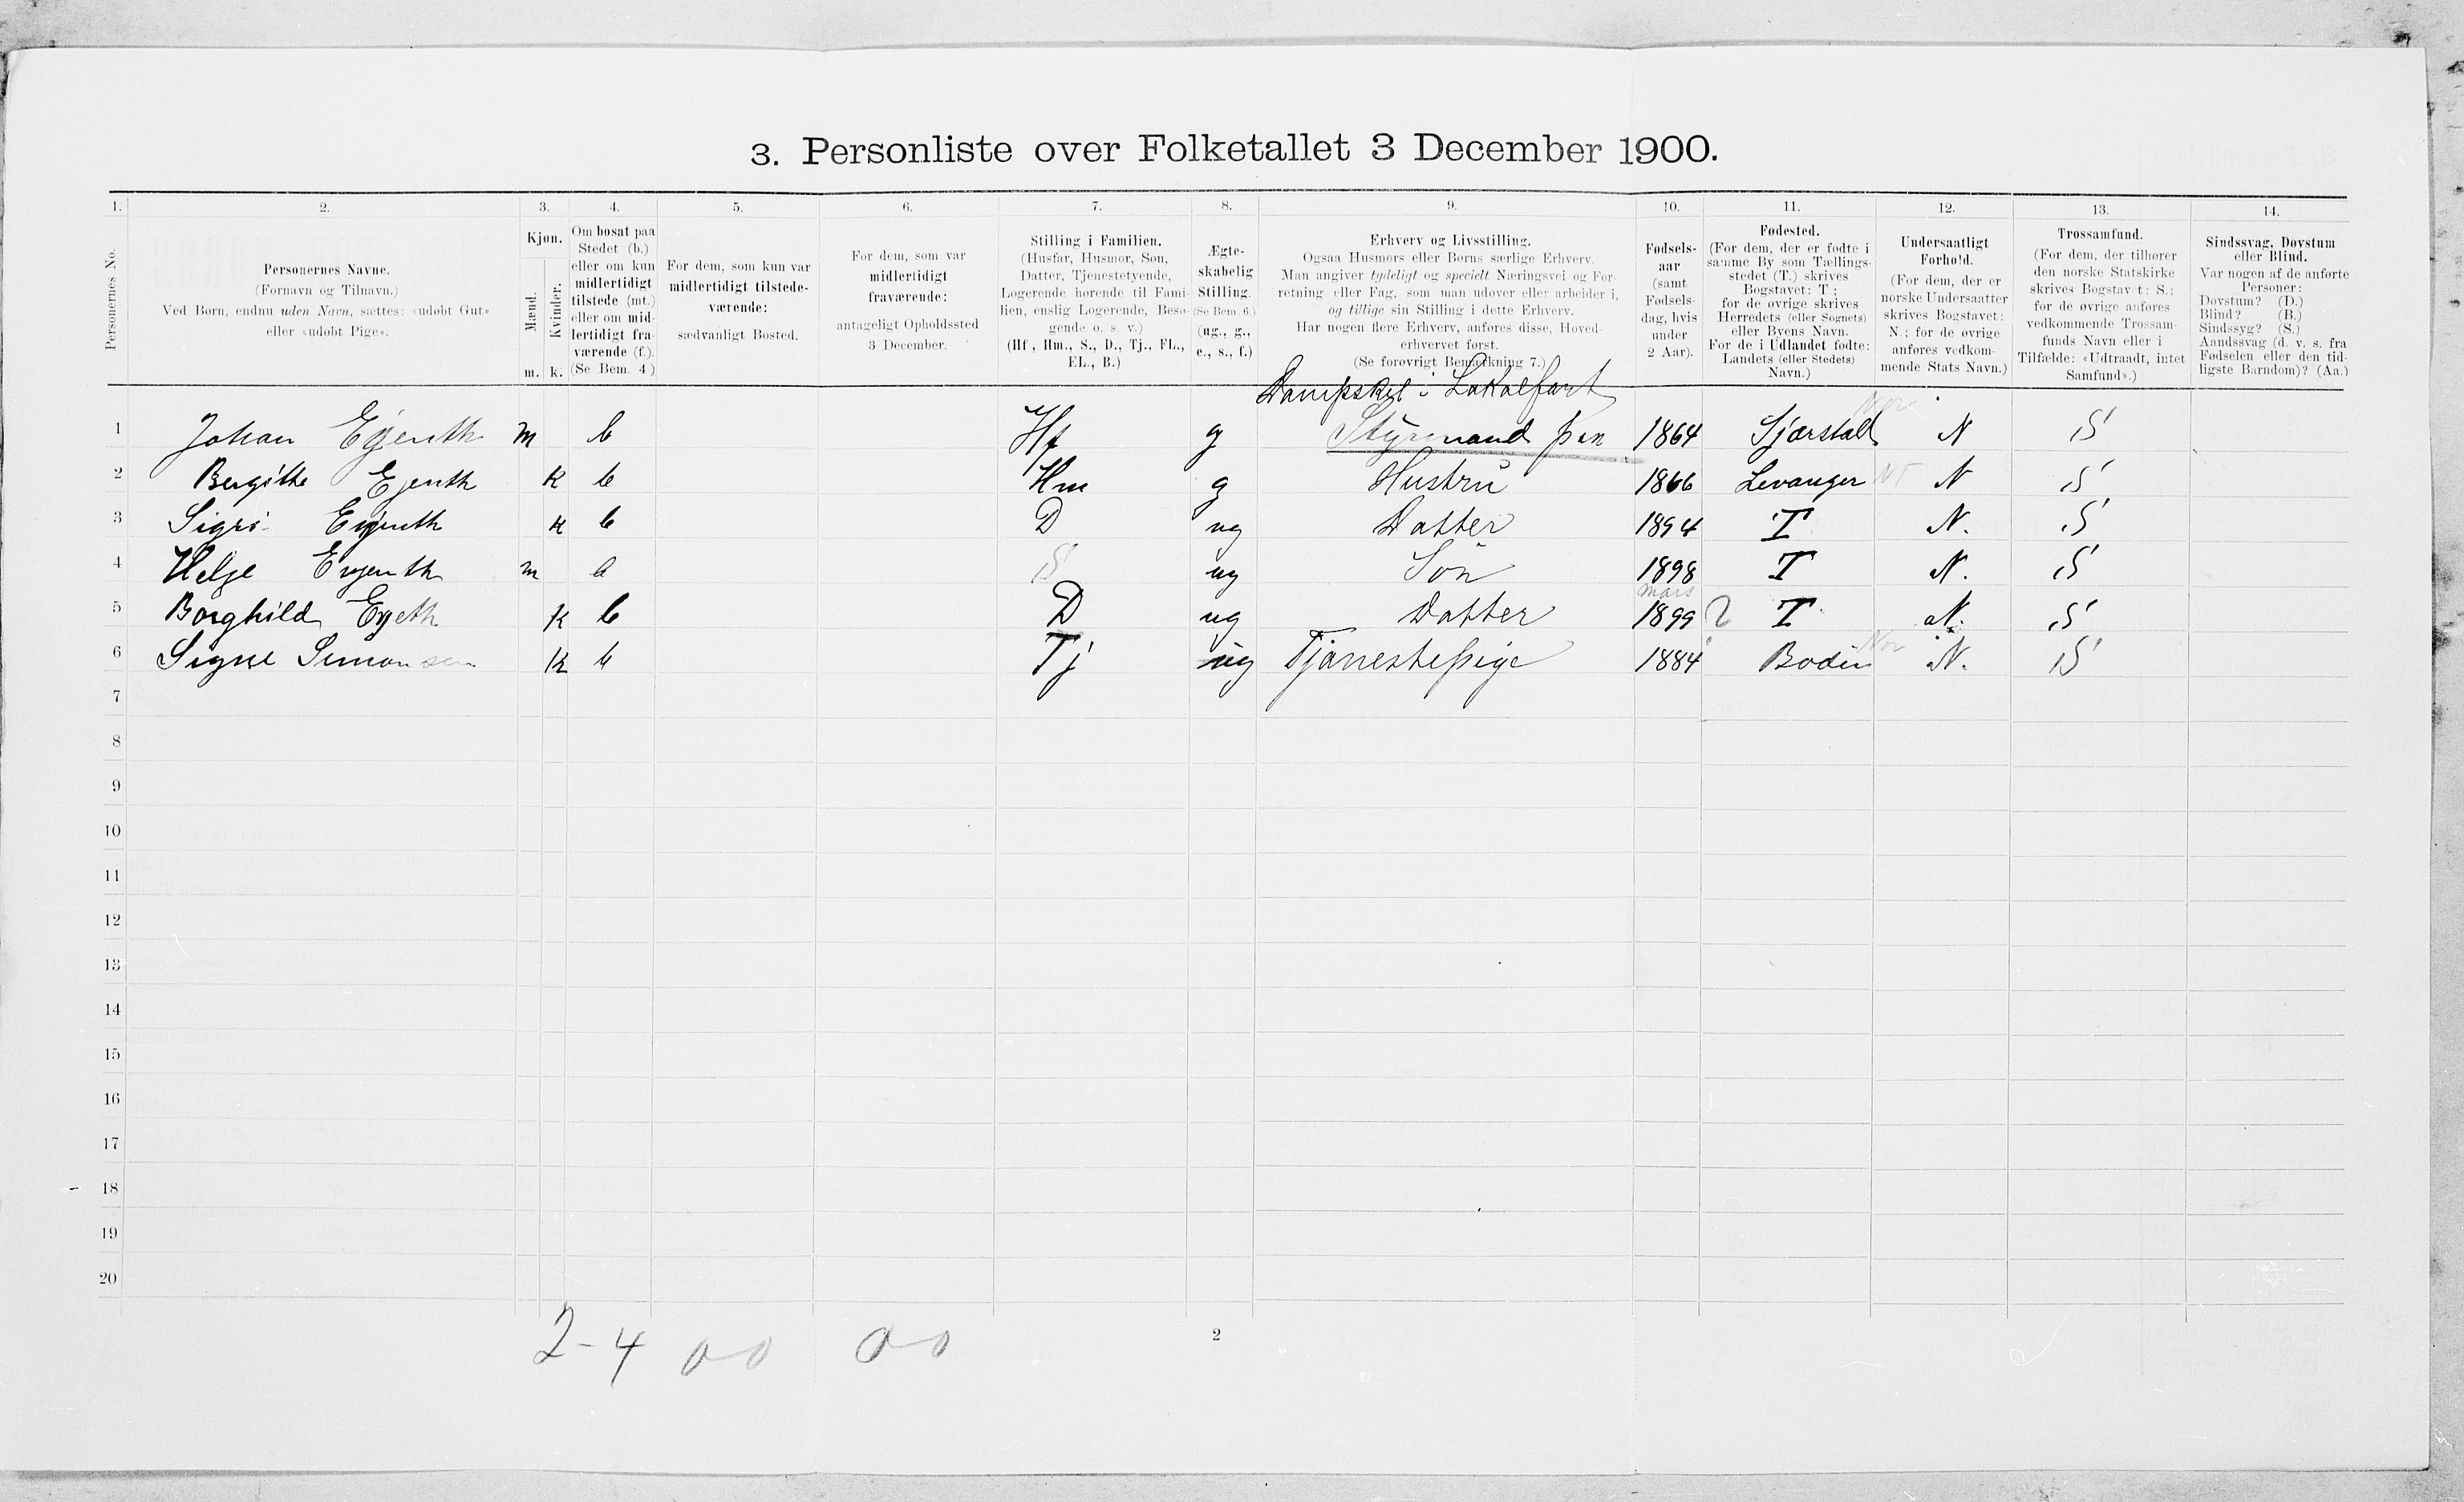 3. Personliste over Folketallet 3 December 1900.
1. 2. 3. 4. 5. 6. 7. 8. 9. 10. 11. 12. 13. 14.
Personernes No.
Personernes Navne.
(Fornavn og Tilnavn.)
Ved Børn, endnu uden Navn, sættes: «udøbt Gut»
eller «udøbt Pige».
Kjøn.
Mænd.
Kvinder.
m. k.
Om bosat paa
Stedet (b.)
eller om kun
midlertidigt
tilstede (mt.)
eller om mid-
lertidigt fra-
værende (f.).
(Se Bem. 4)
For dem, som kun var
midlertidigt tilstede-
værende:
sædvanligt Bosted.
For dem, som var
midlertidigt
fraværende:
antageligt Opholdssted
3 December.
Stilling i Familien.
(Husfar, Husmor, Søn,
Datter, Tjenestetyende,
Logerende hørende til Fami-
lien, enslig Logerende, Besø-
gende o. s. v.)
(Hf., Hm., S., D., Tj., FL.,
EL., B.)
Ægte-
skabelig
Stilling.
(Se Bem. 6.)
(ug., g.,
e., s., f.)
Erhverv og Livsstilling.
Ogsaa Husmors eller Børns særlige Erhverv.
Man angiver tydeligt og specielt Næringsvei og For-
retning eller Fag, som man udøver eller arbeider i,
og tillige sin Stilling i dette Erhverv.
Har nogen flere Erhverv, anføres disse, Hoved-
erhvervet først.
(Se forøvrigt Bemærkning 7.)
Fødsels-
aar
(samt
Fødsels-
dag, hvis
under
2 Aar).
Fødested.
(For dem, der er fødte i
samme By som Tællings-
stedet (T.) skrives
Bogstavet: T;
for de øvrige skrives
Herredets (eller Sognets)
eller Byens Navn.
For de i Udlandet fødte:
Landets (eller Stedets)
Navn.)
Undersaatligt
Forhold.
(For dem, der er
norske Undersaatter
skrives Bogstavet:
N.; for de øvrige
anføres vedkom-
mende Stats Navn.)
Trossamfund.
(For dem, der tilhører
den norske Statskirke
skrives Bogstavet: S.;
for de øvrige anføres
vedkommende Trossam-
funds Navn eller i
Tilfælde: «Udtraadt, intet
Samfund».)
Sindssvag, Døvstum
eller Blind.
Var nogen af de anførte
Personer:
Døvstum? (D.)
Blind? (B.)
Sindssyg? (S.)
Aandssvag (d. v. s. fra
Fødselen eller den tid-
ligste Barndom)? (Aa.)
Dampskib i Lokalfart
1 Johan m b Hf g Styrmand paa 1864 N S
2 Bergitte Ejenth k b Hm g Hustru 1866 Levanger NT N S
3 k b D ug Datter 1894 T N. S
4 Helge m b S ug Søn 1898 T N. S
mars
5 Borghild k b D ug Datter 1899 2 T N. S
6 Signe Simonsen k b Tj ug Tjenestepige 1884 Bodin Nor N. S
7
8
9
10
11
12
13
14
15
16
17
18
19
20
2-4 0-0 0-0
2